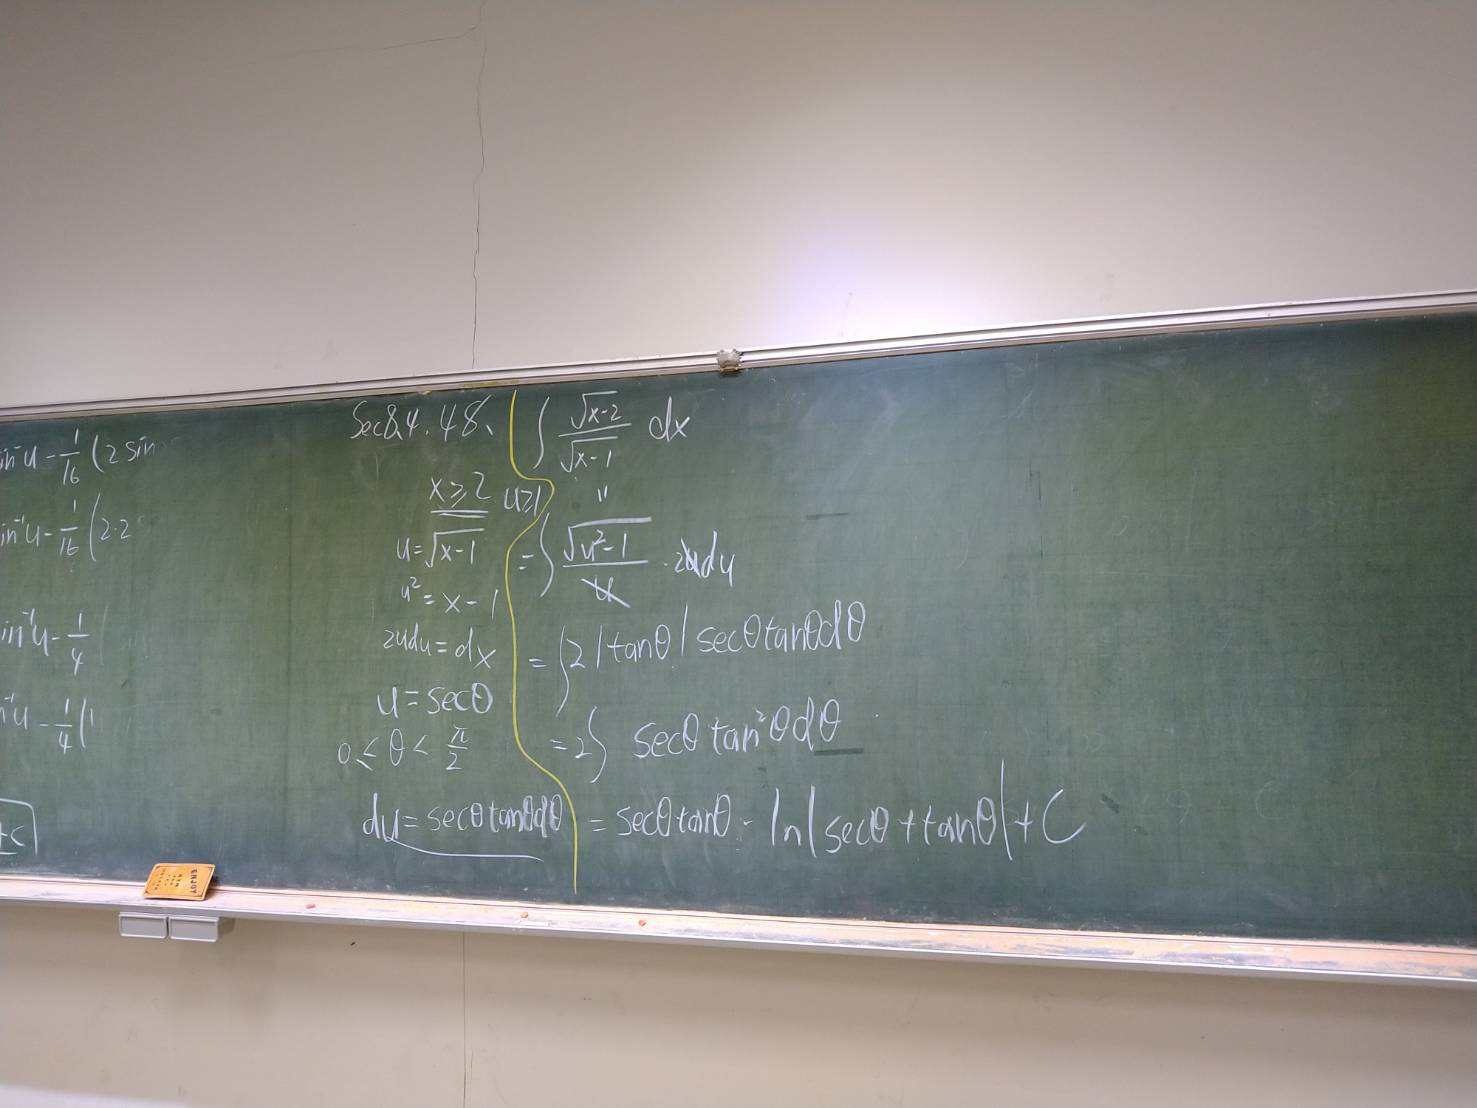 in⁻¹u - 1/16 (2 sin
in⁻¹u - 1/16 (2·2
in⁻¹u - 1/4 (
n⁻¹u - 1/4 (1
+C
Sec 8.4. 48.
x ≥ 2 u ≥ 1
u = √(x-1)
u² = x - 1
2udu = dx
u = secθ
0 ≤ θ < π/2
du = secθtanθdθ
∫ √(x-2)/√(x-1) dx
"
= ∫ √(u²-1)/u · 2udu
= ∫ 2|tanθ| secθtanθdθ
= 2∫ secθ tan²θdθ
= secθtanθ - ln|secθ + tanθ| + C
ENJOY